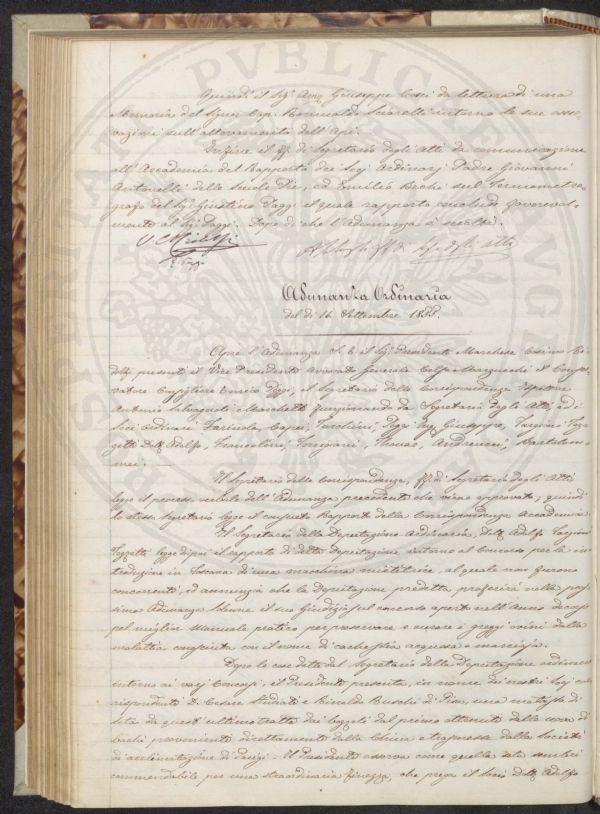 Quindi il Sig. Avv. Giuseppe da lettura di una
Memoria del Signor Cap. Romualdo intorno le sue osser-
vazioni sull'allevamento dell'Api.
Infine il ff. di Segretario degli Atti da comunicazione
all'Accademia del Rapporto dei Sigg. Ordinarj Padre Giovanni
Antonelli delle Scuole Pie, ed Emilio Bechi sul Termometro-
grafo del Sig. Giustino Poggi il quale rapporto conclude favorevol-
mente al Sig. Poggi. Dopo di che l'Adunanza è sciolta.
ff. di Seg. degli Atti
Adunanza Ordinaria
del dì 16 Settembre 1855.
Apre l'Adunanza S. E. il Sig. Presidente Marchese Cosimo Ri-
dolfi presenti il Vice Presidente Avvocato Generale Celso Marzucchi il Conser-
vatore Consigliere Enrico Poggi, il Segretario delle Corrispondenze Ispettore
Antonio Salvagnoli Marchetti funzionando da Segretario degli Atti, ed i
Soci Ordinari Parlatore, Capei, Poggi Ing. Giuseppe, Targioni Toz-
zetti Dott. Adolfo, Franceschini, Torrigiani, Thouar, Andreucci, Bartolom-
mei. —
Il Segretario delle Corrispondenze, ff. di Segretario degli Atti
legge il processo verbale dell'Adunanza precedente che viene approvato; quindi
lo stesso Segretario legge il consueto Rapporto della Corrispondenza Accademica.
Il Segretario della Deputazione ordinaria, Dott. Adolfo Targioni
Tozzetti legge di poi il rapporto di detta Deputazione intorno al Concorso per la in-
troduzione in Toscana di una macchina mietitrice, al quale non furono
concorrenti, ed annunzia che la Deputazione predetta proferirà nella pros-
sima Adunanza Solenne il suo Giudizio sul concorso aperto nell'Anno decorso
pel miglior Manuale pratico per preservare e curare i greggi ovini dalla
malattia conosciuta con il nome di cachessia acquosa o marciaja.
Dopo le cose dette dal Segretario della Deputazione ordinaria
intorno ai varj Concorsi, il Presidente presenta, in nome dei nostri Sigg. Cor-
rispondenti D. Cesare Studiati e Rinaldo Ruschi di Pisa, una matassa di
seta da quest'ultimo tratta dai bozzoli del primo ottenuti dalle uova di
bachi provenienti direttamente dalla China e trapassate dalla Società
di acclimatazione di Parigi. Il Presidente osserva come quella seta sembri
commendabile per una straordinaria finezza, che prega il Socio Dott. Adolfo